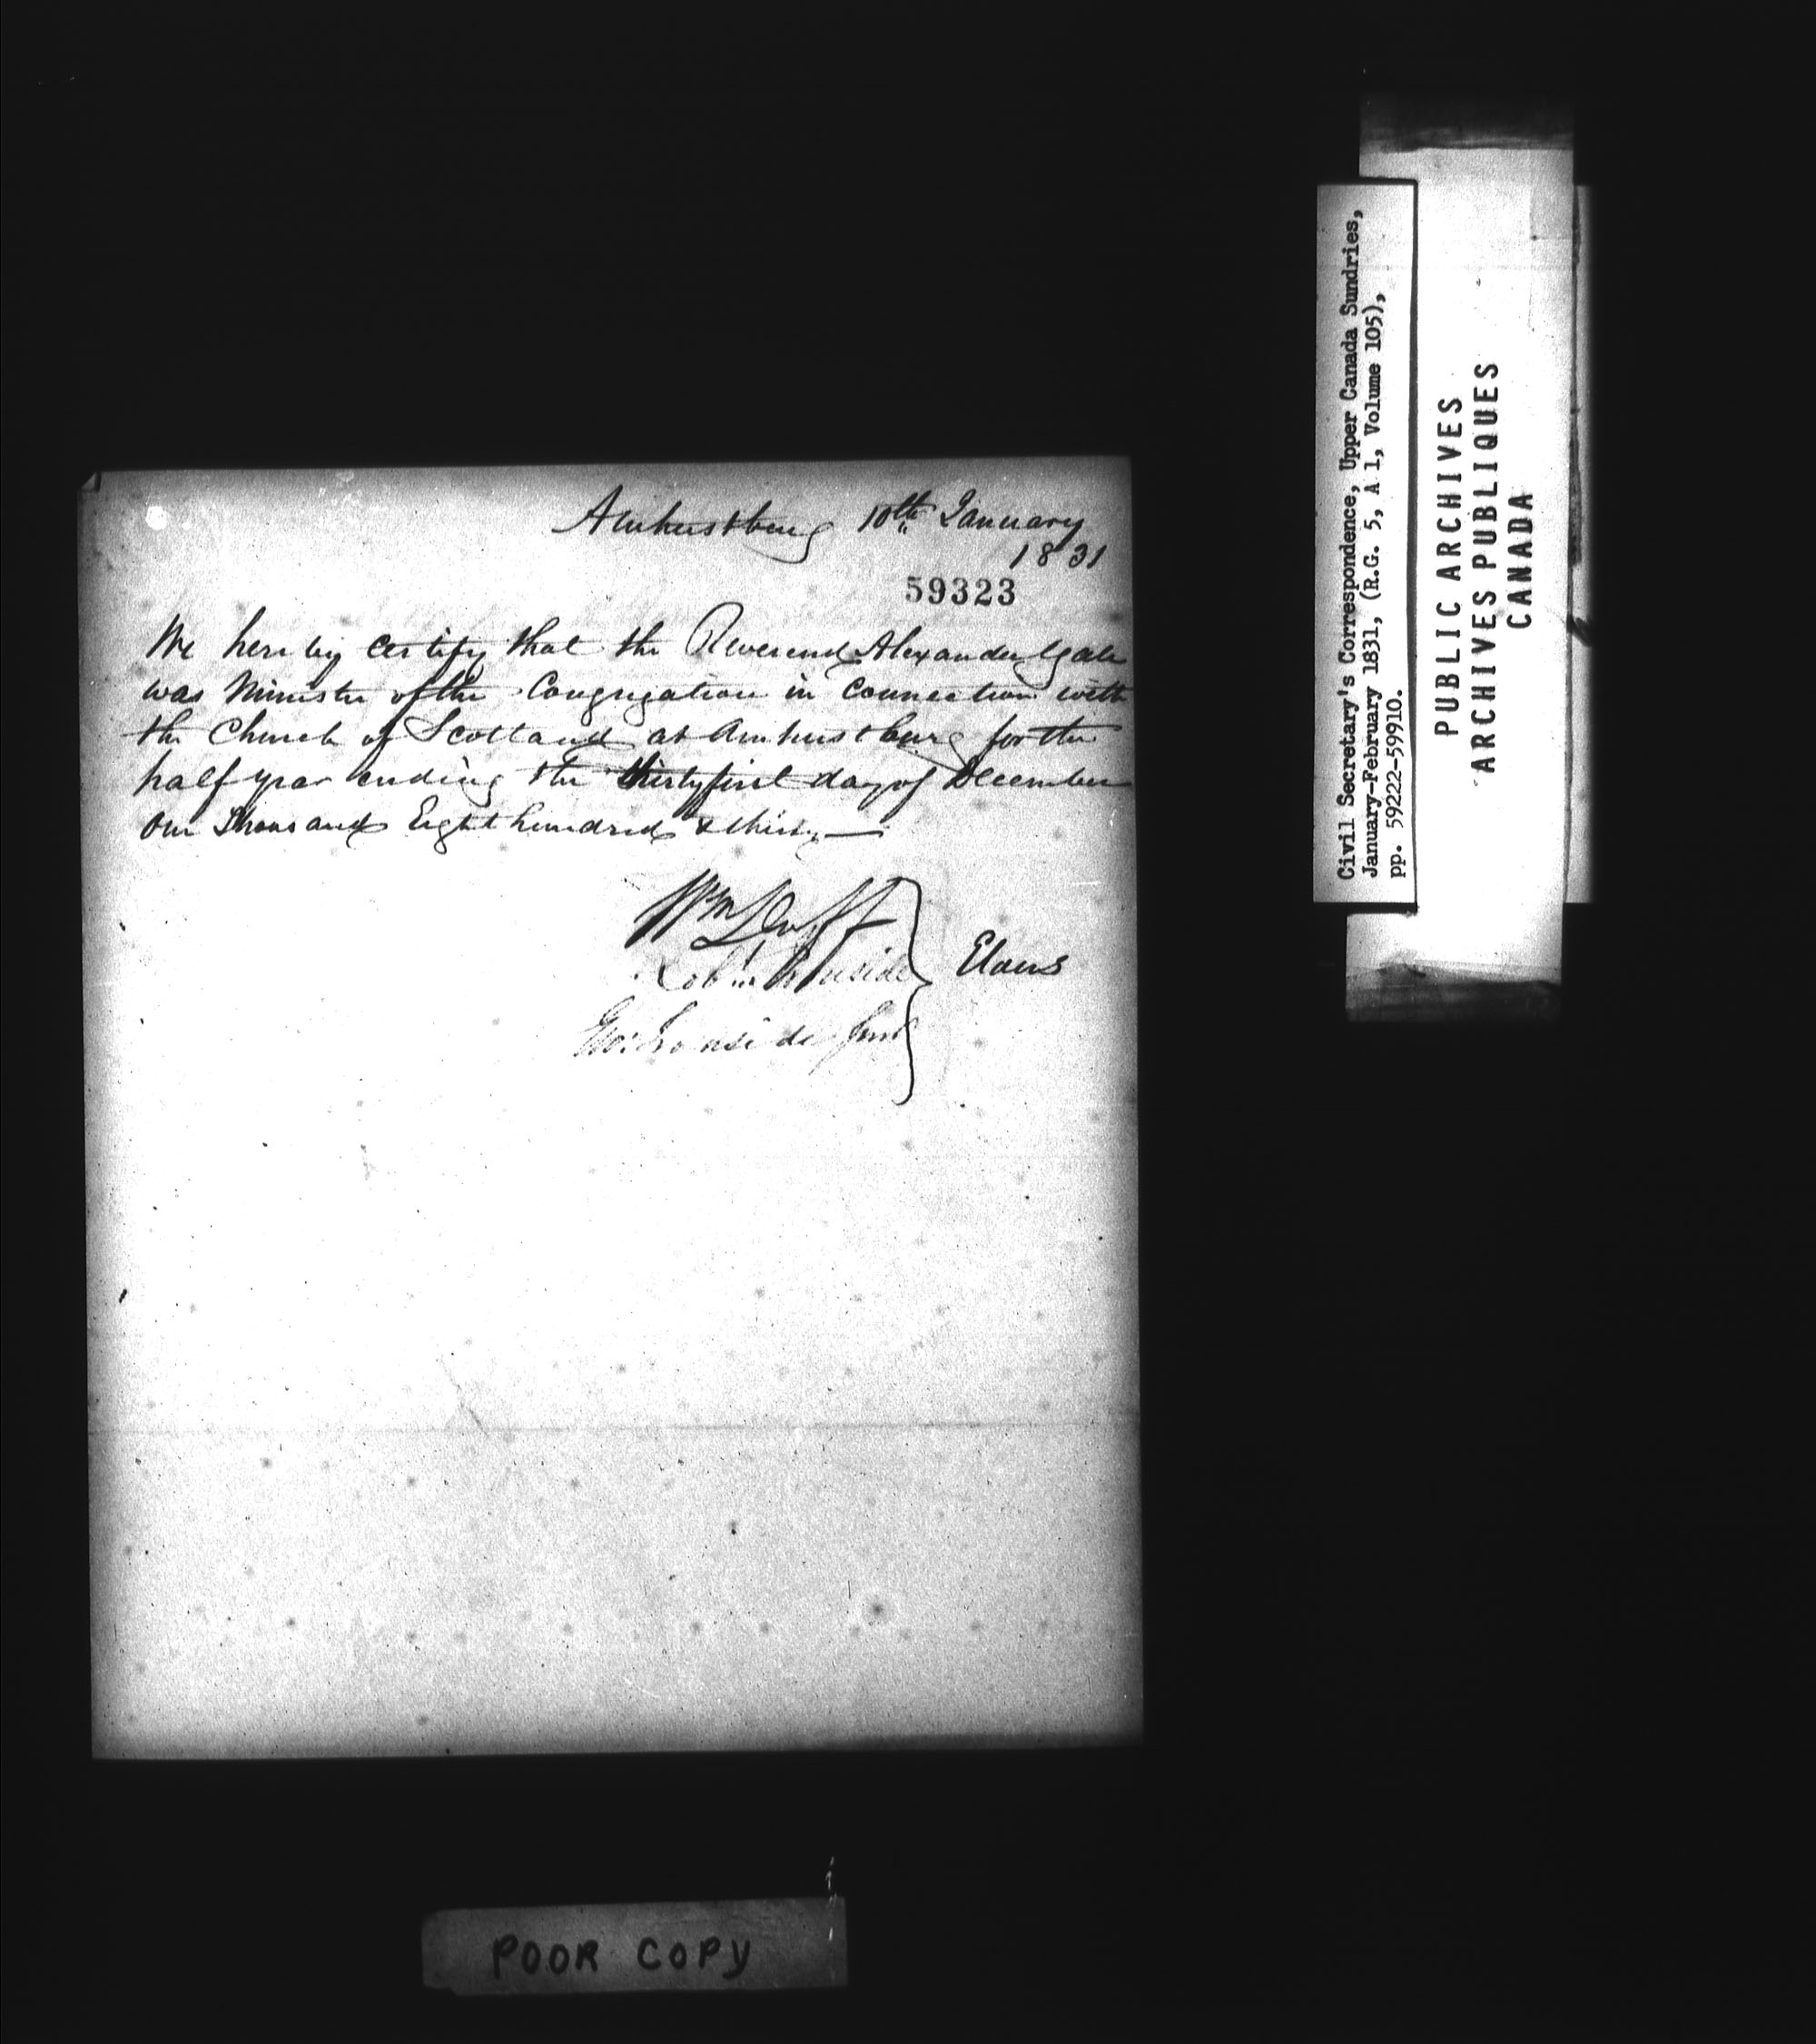 Amherstburg 10th January
1831
59323
We hereby certify that the Reverend Alexander Gale
was Minister of the Congregation in connection with
the Church of Scotland at Amherstburg for the
half year ending the thirty first day of December
One Thousand Eight hundred & thirty —
Wm Duff
Robt Ironside
Geo: Ironside Junr
Elders
Civil Secretary's Correspondence, Upper Canada Sundries,
January-February 1831, (R.G. 5, A 1, Volume 105),
pp. 59222-59910.
PUBLIC ARCHIVES
ARCHIVES PUBLIQUES
CANADA
POOR COPY